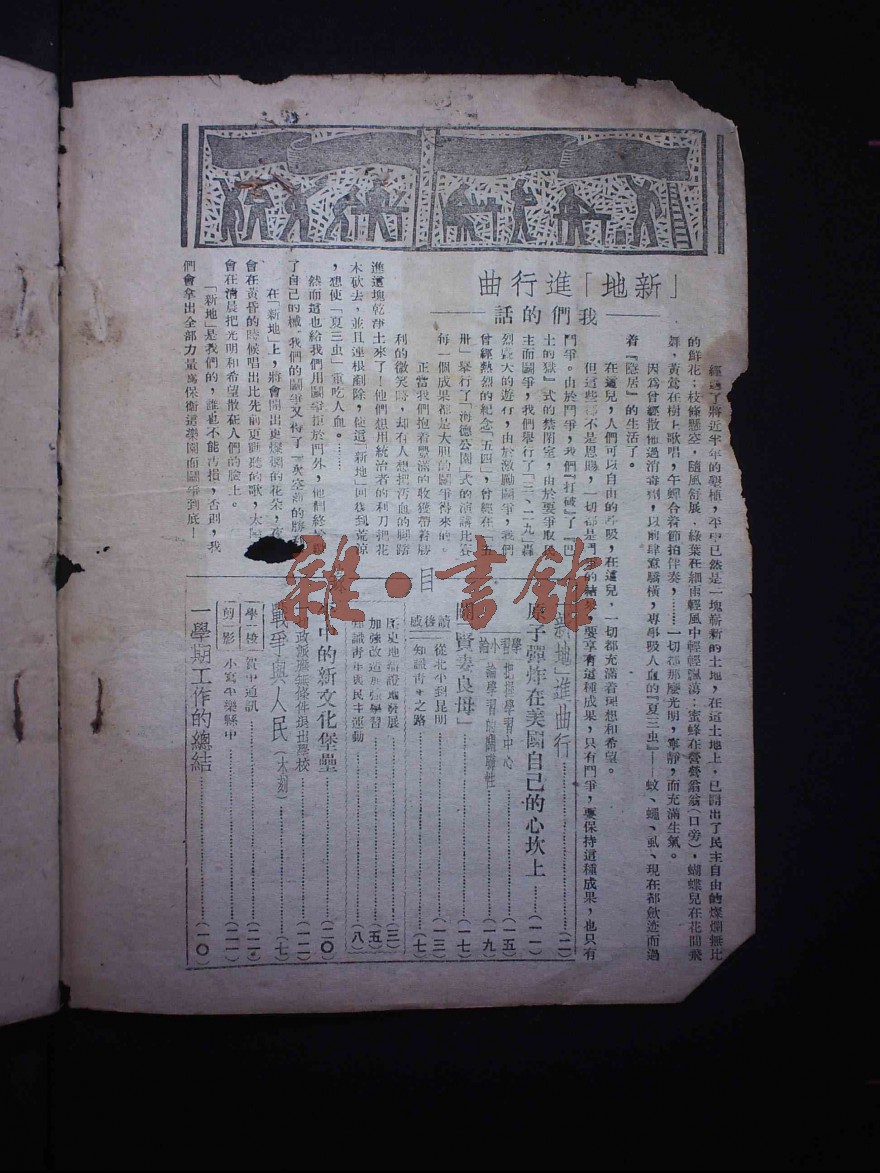 「新地」進行曲
——我們的話——
經過了將近半年的墾植,牢中已然是一塊嶄新的土地,在這土地上,已開出了民主自由的燦爛無比
的鮮花;枝條懸空,隨風舒展,綠葉在細雨輕風中輕輕飄蕩;蜜蜂在營營翁翁(口旁),蝴蝶兒在花間飛
舞,黃鶯在樹上歌唱,午蟬合着節拍伴奏,……一切都那麼光明,寧靜,而充滿生氣。
因爲曾經散佈過消毒劑,以前肆意驕橫,專學吸人血的『夏三虫』——蚊、蠅、虱、現在都歛迹而過
着『隱居』的生活了。
在這兒,人們可以自由的呼吸,在這兒,一切都充滿着理想和希望。
但這些都不是恩賜,一切都是鬥爭的結果,要享有這種成果,只有鬥爭,要保持這種成果,也只有
鬥爭。由於鬥爭,我們『打破』了『巴
士的獄』式的禁閉室,由於要爭取民
主而鬪爭,我們舉行了『三、二九』轟
烈盛大的遊行,由於激勵鬪爭,我們
曾經熱烈的紀念『五四』,曾經在『五
卅』舉行了『海德公園』式的演講比賽
每一個成果都是大胆的鬪爭得來的。
正當我們抱着豐滿的收獲帶着勝
利的微笑時,却有人想把污血的脚踏
進這塊乾淨土來了!他們想用統治者的利刀把花
木砍去,並且連根剷除,使這『新地』回復到荒涼
,想使『夏三虫』重吃人血。……
然而這也給我們用鬪爭拒於門外,他們終於
了自己的械。我們的鬪爭又得了一次空前的勝利
在『新地』上,將會開出更燦爛的花朵,夜
會在黃昏的時候唱出比先前更動聽的歌,太陽
會在清晨把光明和希望散在人們的臉上。
「新地」是我們的,誰也不能污損,否則,我
們會拿出全部力量爲保衛這樂園而鬪爭到底!
目
「新地」進曲行……(二)
原子彈炸在美國自己的心坎上……(一一)
學習小
把握學習中心……(一五)
論學習的關聯性……(一九)
「賢妻良母」……(一七)
讀後感
從北平到昆明……(一三)
知識青年之路……(七)
歷史地循證地發展……(三)
加強改造加強學習……(五)
知識青年與民主運動……(八)
中的新文化堡壘……(二〇)
政派應無條件退出學校……(一二)
戰爭與人民(木刻)……(七)
學校
賀中通訊……(二一)
剪影
小寫平樂縣中……(二一)
一學期工作的總結……(一〇)
雜·書館